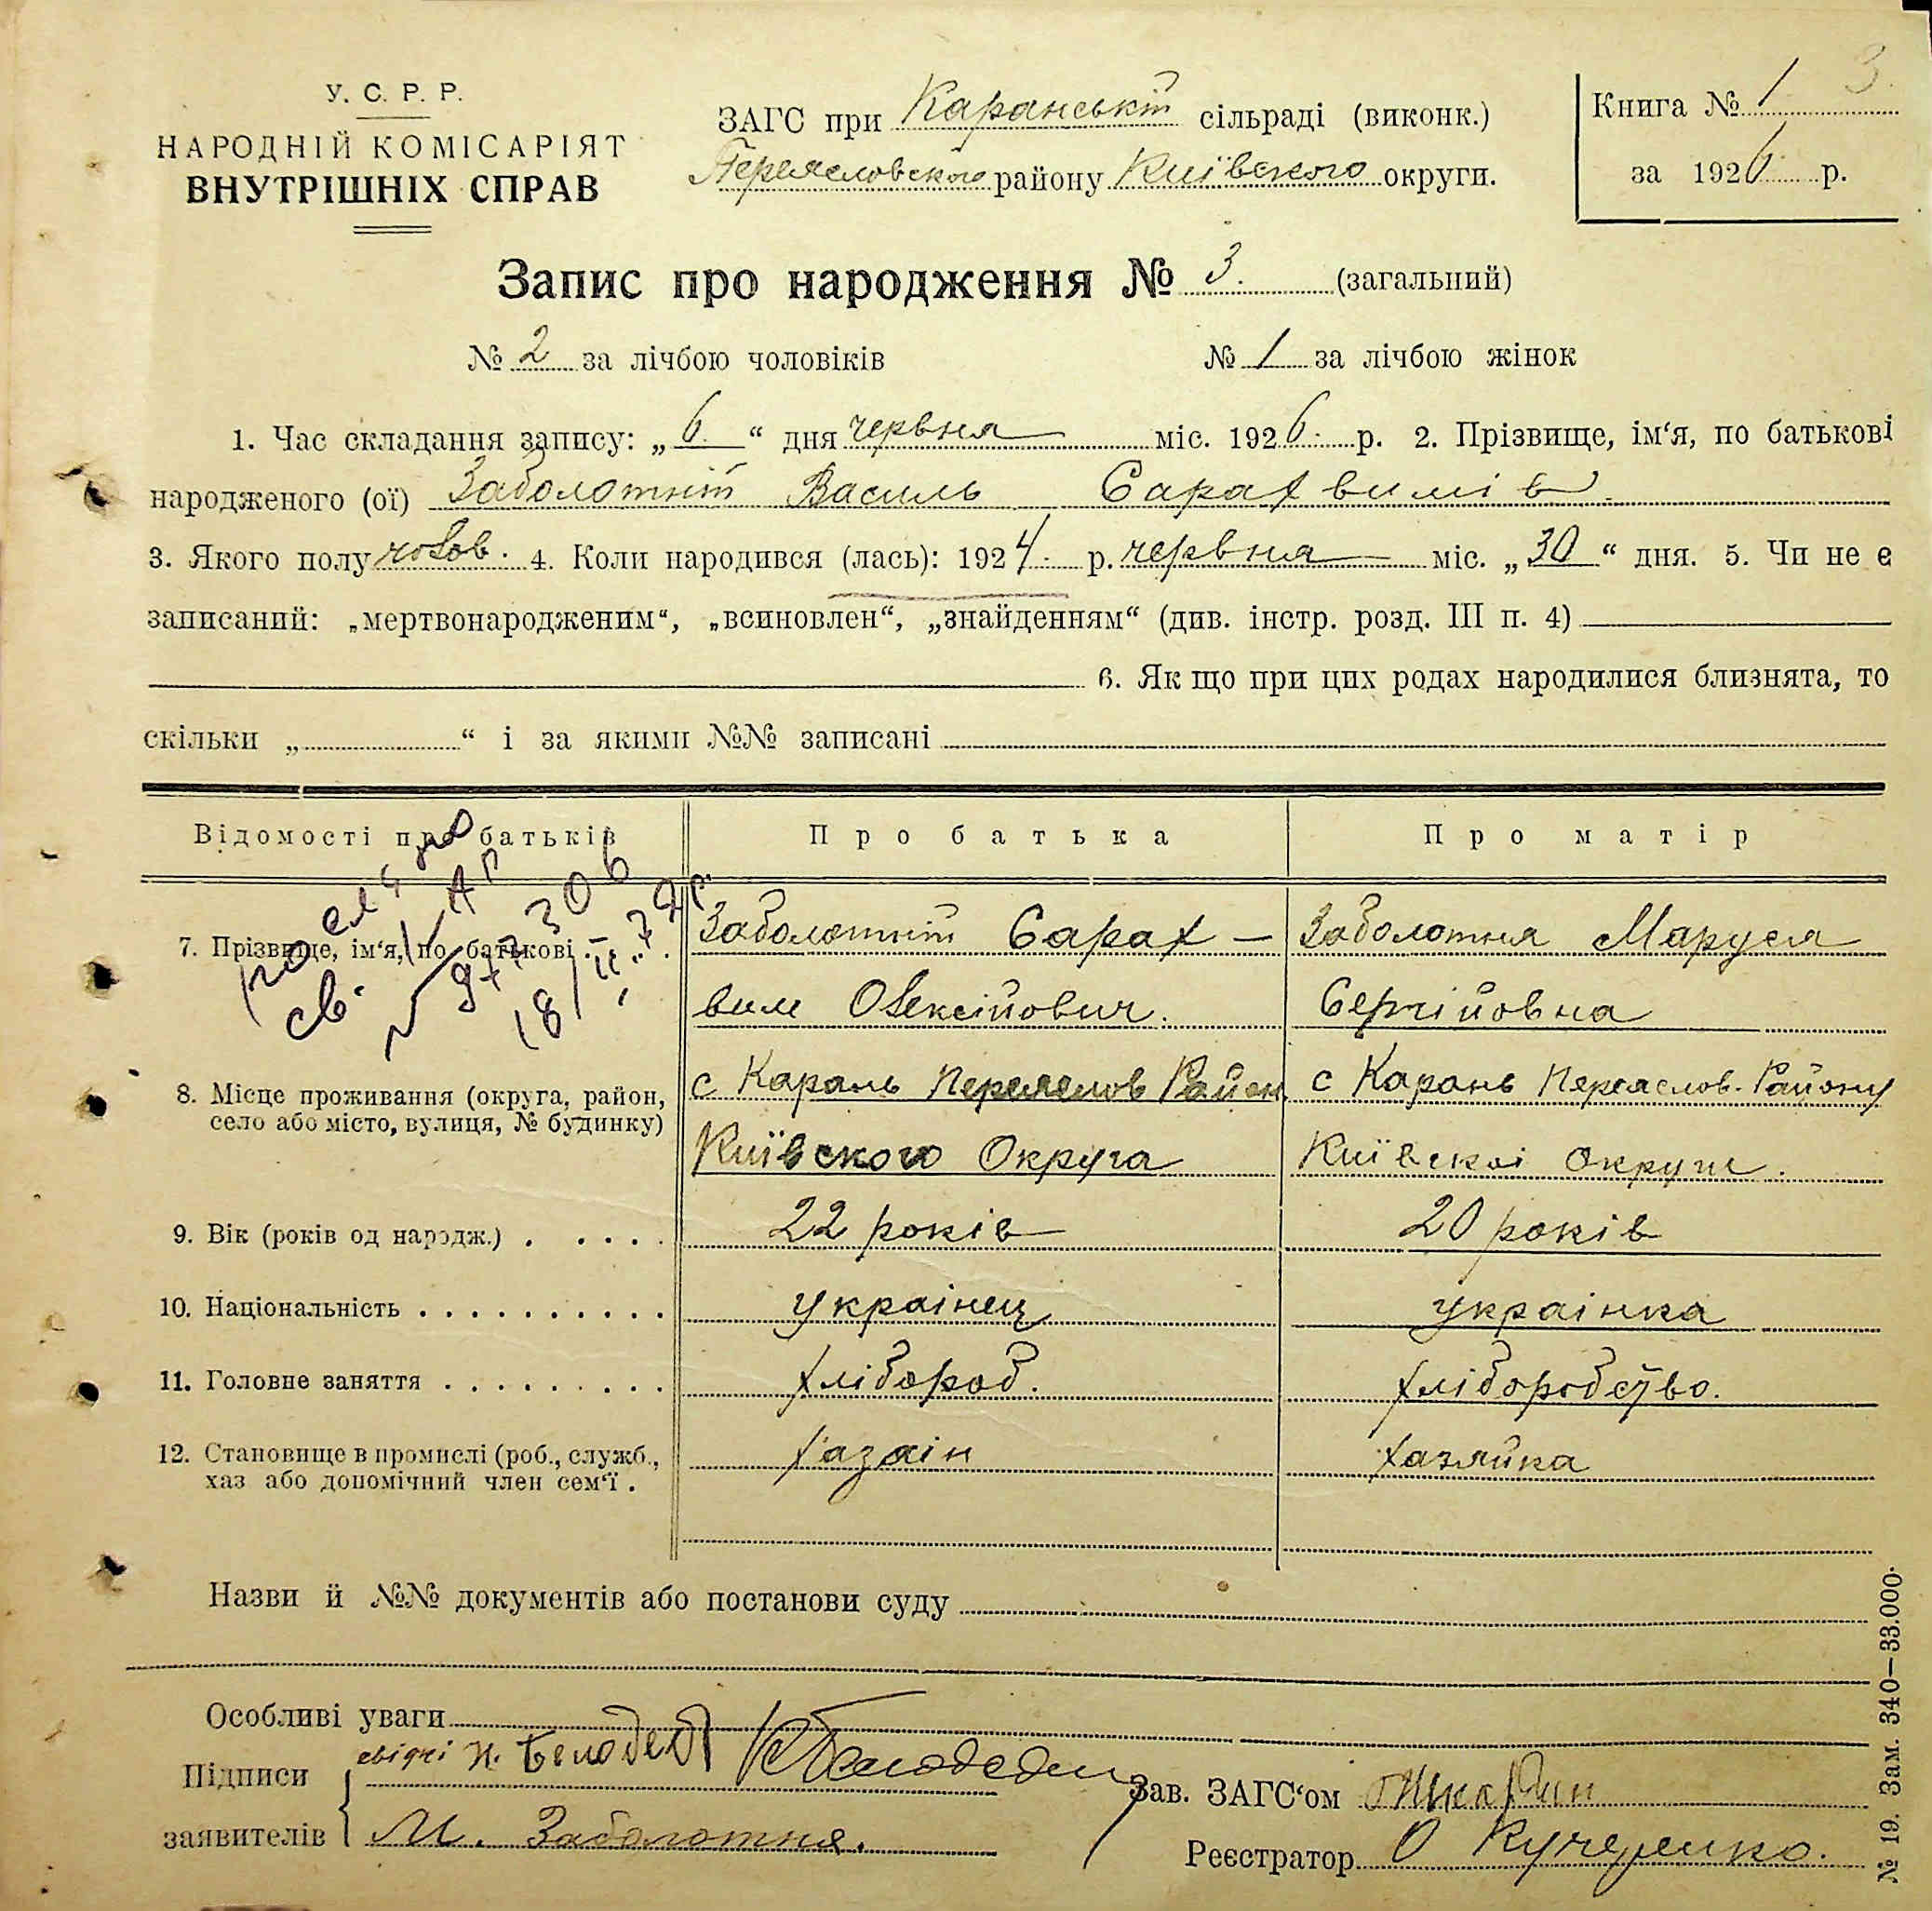 3.
У. С. Р. Р.
НАРОДНІЙ КОМІСАРІЯТ
ВНУТРІШНІХ СПРАВ
ЗАГС при Каранській сільраді (виконк.)
Переясловского району Київского округи.
Книга № 1
за 1926 р.
Запис про народження № 3. (загальний)
№ 2 за лічбою чоловіків № 1 за лічбою жінок
1. Час складання запису: „6.“ дня червня міс. 1926. р. 2. Прізвище, ім‘я, по батькові
народженого (ої) Заболотній Василь Сарахвимів.
3. Якого полу чолов. 4. Коли народився (лась): 1924. р. червня міс. „30“ дня. 5. Чи не є
записаний: „мертвонародженим“, „всиновлен“, „знайденням“ (див. інстр. розд. III п. 4)
6. Як що при цих родах народилися близнята, то
скільки „ “ і за якими №№ записані
Відомості про батьків Про батька Про матір
7. Прізвище, ім‘я, по батькові Заболотній Сарах- Заболотня Маруся
вим Олексійович. Сергійовна
8. Місце проживання (округа, район, с Карань Переяслов Район с Карань Переяслов. Району
село або місто, вулиця, № будинку) Київского Округа Київскоі Округи.
9. Вік (років од народж.) . . . . . 22 років 20 років
10. Національність . . . . . . . . . . українец українка
11. Головне заняття . . . . . . . . . хлібороб. хліборобство.
12. Становище в промислі (роб., служб., хазяін хазяйка
хаз або допомічний член сем‘ї .
св. № 977306
18/II.
Назви й №№ документів або постанови суду
Особливі уваги
Підписи свідкі Н. Белодед
заявителів М. Заболотня.
Зав. ЗАГС‘ом
Реєстратор О Кучеренко.
№ 19. Зам. 340—33.000.